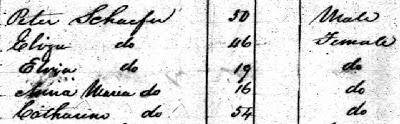 Peter Schaefer 50 Male
Eliza do 46 Female
Elvja do 19 do
Anna Maria do 16 do
Catharine do 54 do